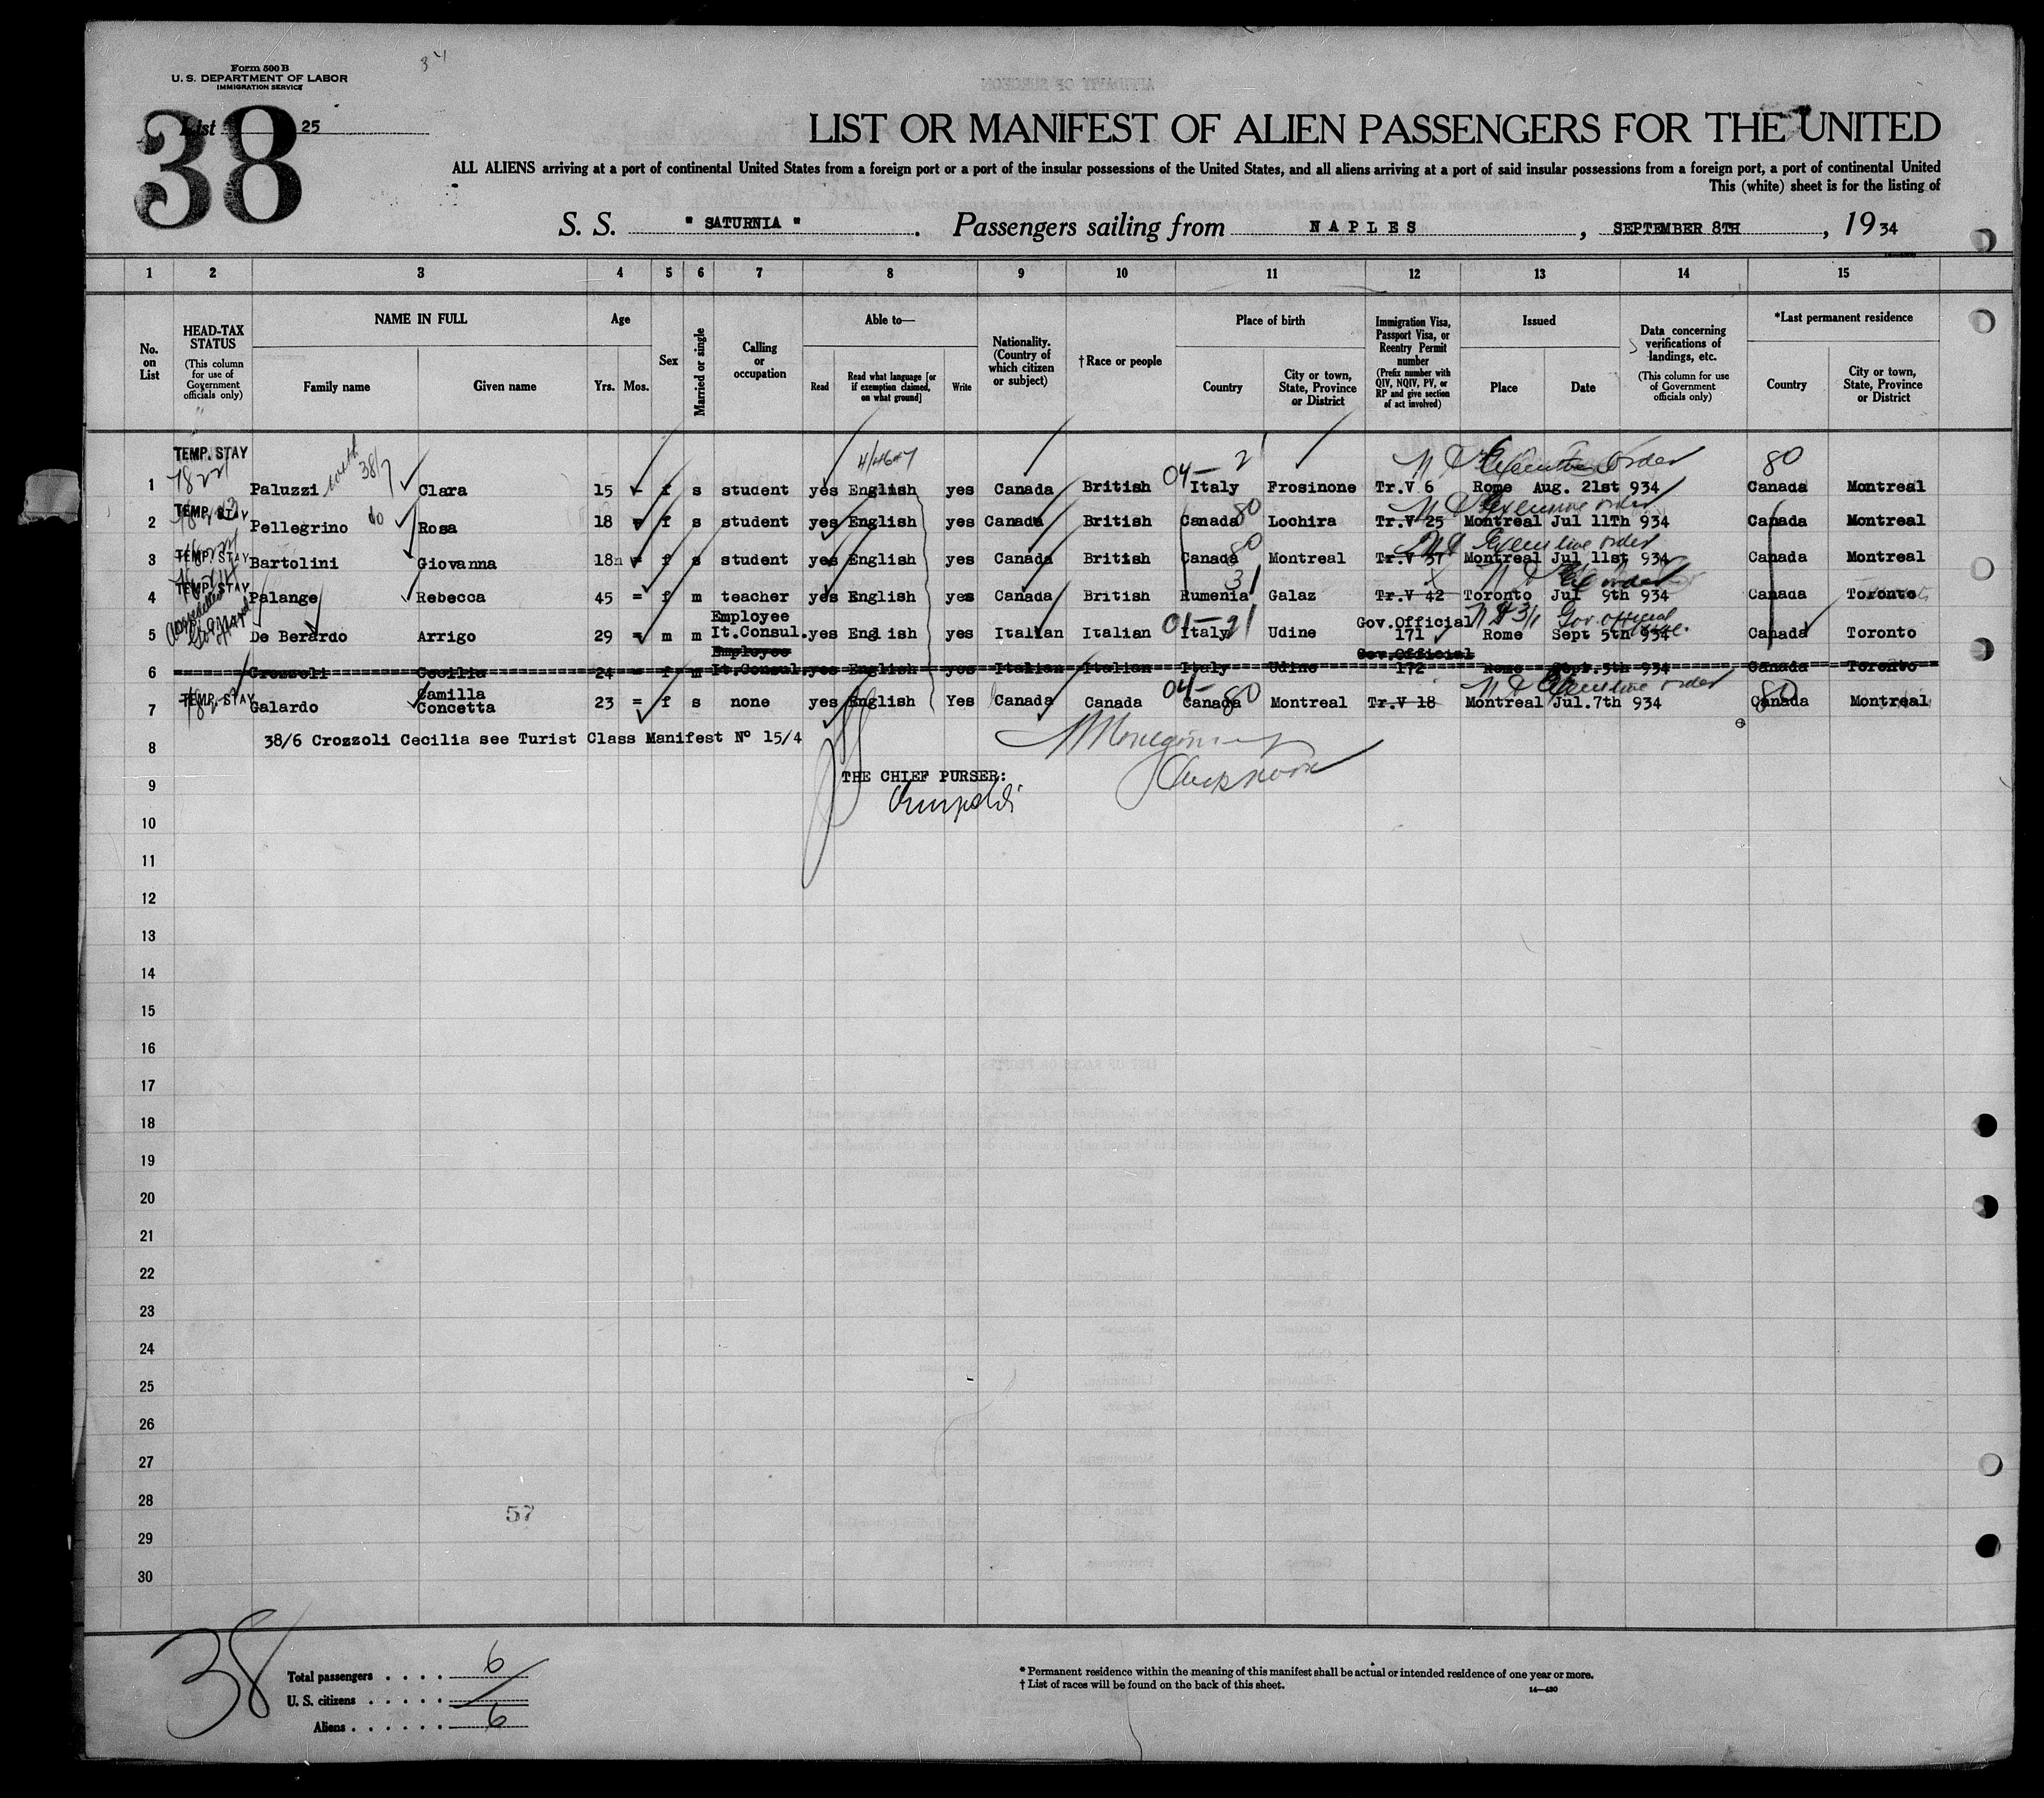 Form 500 B
U. S. DEPARTMENT OF LABOR
IMMIGRATION SERVICE
34
38
List 25
LIST OR MANIFEST OF ALIEN PASSENGERS FOR THE UNITED
ALL ALIENS arriving at a port of continental United States from a foreign port or a port of the insular possessions of the United States, and all aliens arriving at a port of said insular possessions from a foreign port, a port of continental United
This (white) sheet is for the listing of
S. S. " SATURNIA ". Passengers sailing from NAPLES, SEPTEMBER 8TH, 1934
1 2 3 4 5 6 7 8 9 10 11 12 13 14 15
No. on List
HEAD-TAX STATUS
(This column for use of Government officials only)
NAME IN FULL
Family name
Given name
Age
Yrs. Mos.
Sex
Married or single
Calling or occupation
Able to—
Read
Read what language [or if exemption claimed, on what ground]
Write
Nationality. (Country of which citizen or subject)
†Race or people
Place of birth
Country
City or town, State, Province or District
Immigration Visa, Passport Visa, or Reentry Permit number
(Prefix number with QIV, NQIV, PV, or RP and give section of act involved)
Issued
Place
Date
Data concerning verifications of landings, etc.
(This column for use of Government officials only)
*Last permanent residence
Country
City or town, State, Province or District
TEMP. STAY with 38/7 04— 2 Executive order 80
1 Paluzzi Clara 15 - f s student yes English yes Canada British Italy Frosinone Tr.V 6 Rome Aug. 21st 934 Canada Montreal
TEMP. STAY do 80 Executive order
2 Pellegrino Rosa 18 = f s student yes English yes Canada British Canada Lochira Tr.V 25 Montreal Jul 11Th 934 Canada Montreal
TEMP. STAY 80 Executive order
3 Bartolini Giovanna 18 = f s student yes English yes Canada British Canada Montreal Tr.V 37 Montreal Jul 11st 934 Canada Montreal
TEMP. STAY 31 Ex order
4 Palange Rebecca 45 = f m teacher yes English yes Canada British Rumenia Galaz Tr.V 42 Toronto Jul 9th 934 Canada Toronto
Employee 01—21 Gov.Official 3/1 Gov. official
5 De Berardo Arrigo 29 = m m It.Consul. yes English yes Italian Italian Italy Udine 171 Rome Sept 5th 934 Canada Toronto
Employee Gov.Official
6 Crozzoli Cecilia 24 = f m It.Consul. yes English yes Italian Italian Italy Udine 172 Rome Sept.5th 934 Canada Toronto
TEMP. STAY Camilla 04— 80 Executive order 80
7 Galardo Concetta 23 = f s none yes English Yes Canada Canada Canada Montreal Tr.V 18 Montreal Jul.7th 934 Canada Montreal
8 38/6 Crozzoli Cecilia see Turist Class Manifest Nº 15/4
9 THE CHIEF PURSER:
10
11
12
13
14
15
16
17
18
19
20
21
22
23
24
25
26
27
28
57
29
30
38
Total passengers . . . . 6
U. S. citizens . . . . .
Aliens . . . . . . 6
* Permanent residence within the meaning of this manifest shall be actual or intended residence of one year or more.
† List of races will be found on the back of this sheet.
14—430